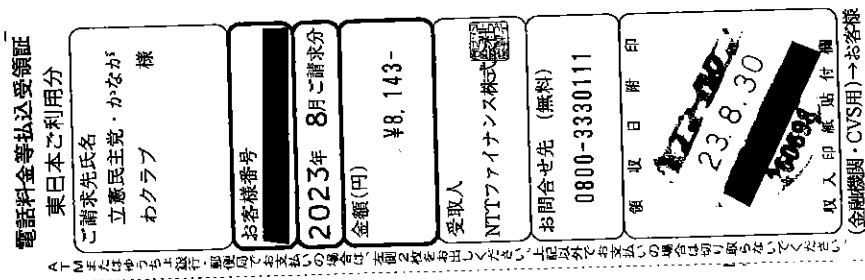 電話料金等払込受領証
東日本ご利用分
ご請求先氏名
立憲民主党・かなが
わクラブ 様
お客様番号
2023年 8月ご請求分
金額(円)
¥8,143-
受取人
NTTファイナンス株式会社
お問合せ先 (無料)
0800-3330111
領収日附印
23.8.30
60698
収入印紙貼付欄
(金融機関・CVS用)→お客様
ATMまたはゆうちょ銀行・郵便局でお支払いの場合は、左側2枚をお出しください。上記以外でお支払いの場合は切り取らないでください。